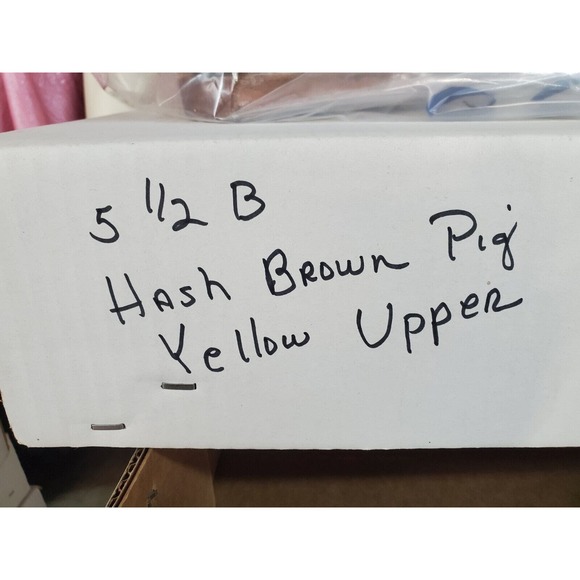 5 1/2 B
Hash Brown Pig
Yellow Upper